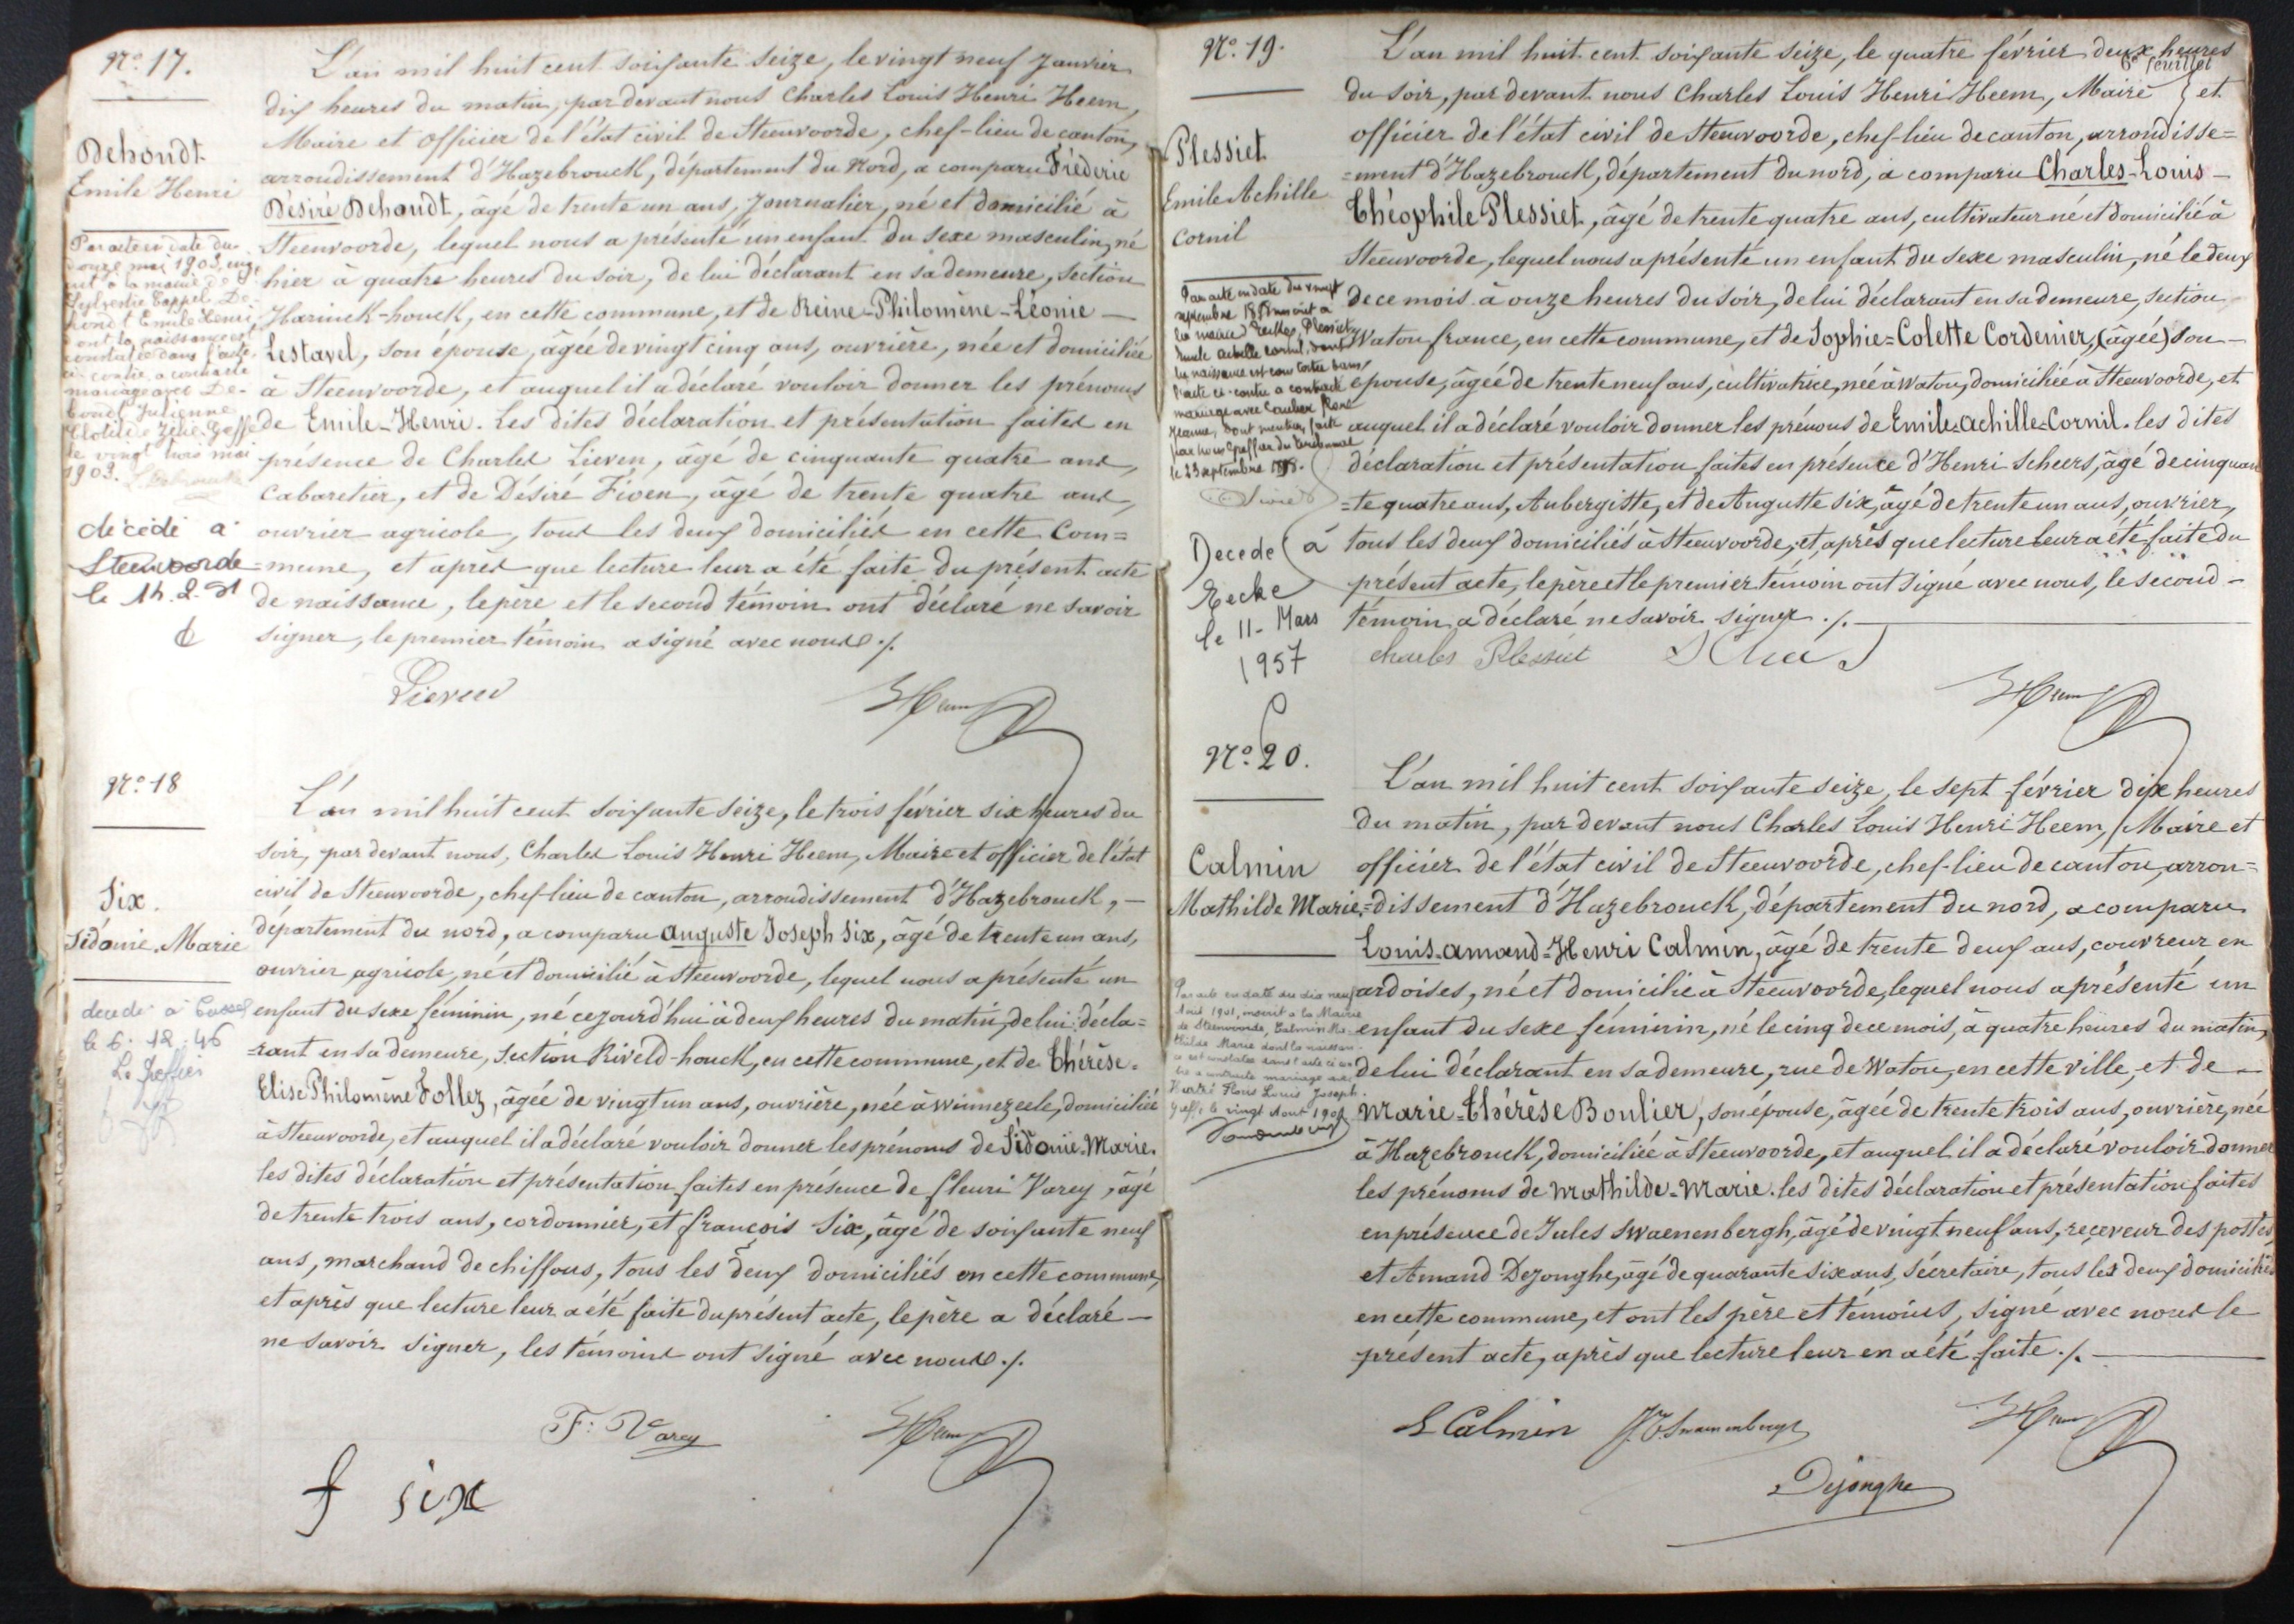 Nº 17.
Dehondt
Emile Henri
Par acte en date du
douze mai 1903, ins
crit à la mairie de
Sylvestre Cappel, De-
hondt Emile Henri
dont la naissance est
constatée dans l'acte
ci-contre, a contracté
mariage avec De-
Julienne
Clotilde Zélie. Greffe
le vingt trois mai
1903.
décédé à
Steenvoorde
le 14.2.
L'an mil huit cent soixante seize, le vingt neuf Janvier
dix heures du matin, par devant nous Charles Louis Henri Heem,
Maire et officier de l'état civil de Steenvoorde, chef-lieu de canton,
arrondissement d'Hazebrouck, département du Nord, a comparu Fréderic
Désiré Dehondt, âgé de trente un ans, Journalier, né et domicilié à
Steenvoorde, lequel nous a présenté un enfant du sexe masculin, né
hier à quatre heures du soir, de lui déclarant en sa demeure, section
Harinck-houck, en cette commune, et de Reine-Philomène-Léonie —
Lestavel, son épouse, âgée de vingt cinq ans, ouvrière, née et domiciliée
à Steenvoorde, et auquel il a déclaré vouloir donner les prénoms
de Emile-Henri. Les dites déclaration et présentation faites en
présence de Charles Lieven, âgé de cinquante quatre ans,
Cabaretier, et de Désiré Fioen, âgé de trente quatre ans,
ouvrier agricole, tous les deux domiciliés en cette Com=
=mune, et après que lecture leur a été faite du présent acte
de naissance, le père et le second témoin ont déclaré ne savoir
signer, le premier témoin a signé avec nous ./.
Lieven
Heem
Nº 18
Six.
Sidonie. Marie
décédé à Cassel
le 6.12.46
Le Greffier
L'an mil huit cent soixante seize, le trois février six heures du
soir, par devant nous, Charles Louis Henri Heem, Maire et officier de l'état
civil de Steenvoorde, chef-lieu de canton, arrondissement d'Hazebrouck, —
département du nord, a comparu Auguste Joseph Six, âgé de trente un ans,
ouvrier agricole, né et domicilié à Steenvoorde, lequel nous a présenté un
enfant du sexe féminin, né cejourd'hui à deux heures du matin, de lui décla=
=rant en sa demeure, section Riveld-houck, en cette commune, et de Thérèse.
Elise Philomène Follez, âgée de vingt un ans, ouvrière, née à Winnezeele, domiciliée
à Steenvoorde, et auquel il a déclaré vouloir donner les prénoms de Sidonie-Marie.
les dites déclaration et présentation faites en présence de fleuri Varey, âgé
de trente trois ans, cordonnier, et françois Six, âgé de soixante neuf
ans, marchand de chiffons, tous les deux domiciliés en cette commune,
et après que lecture leur a été faite du présent acte, le père a déclaré —
ne savoir signer, les témoins ont signé avec nous ./.
F: Varey
Heem
f six
Nº 19.
Plessiet
Emile Achille
Cornil
Par acte en date du vingt
septembre inscrit à
la mairie d'Eecke, Plessiet
Emile Achille Cornil, dont
la naissance est constatée dans
l'acte ci-contre a contracté
mariage avec
Jeanne, dont mention faite
par nous Greffier du tribunal
le 23 septembre
Décédé à
Eecke
le 11-Mars
1957
6e feuillet
L'an mil huit cent soixante seize, le quatre février deux heures
du soir, par devant nous Charles Louis Henri Heem, Maire et
officier de l'état civil de Steenvoorde, chef-lieu de canton, arrondisse=
=ment d'Hazebrouck, département du nord, a comparu Charles-Louis —
Théophile Plessiet, âgé de trente quatre ans, cultivateur né et domicilié à
Steenvoorde, lequel nous a présenté un enfant du sexe masculin, né le deux
de ce mois à onze heures du soir, de lui déclarant en sa demeure, section
Watou france, en cette commune, et de Sophie=Colette Cordenier, (âgée) son —
épouse, âgée de trente neuf ans, cultivatrice, née à Watou, domiciliée à Steenvoorde, et
auquel il a déclaré vouloir donner les prénoms de Emile-Achille-Cornil. les dites
déclaration et présentation faites en présence d'Henri Scheers, âgé de cinquan
=te quatre ans, Aubergiste, et de Auguste Six, âgé de trente un ans, ouvrier,
tous les deux domiciliés à Steenvoorde, et après que lecture leur a été faite du
présent acte, le père et le premier témoin ont signé avec nous, le second —
témoin a déclaré ne savoir signer ./. —
charles Plessiet
Heem
Nº 20.
Calmin
Mathilde Marie
Par acte en date du dix neuf
Août 1901, inscrit à la Mairie
de Steenvoorde, Calmin Ma-
thilde Marie dont la naissan-
ce est constatée dans l'acte ci con
tre a contracté mariage avec
Floris Louis Joseph.
Greffe le vingt Août 1901
L'an mil huit cent soixante seize, le sept février dix heures
du matin, par devant nous Charles Louis Henri Heem, Maire et
officier de l'état civil de Steenvoorde, chef-lieu de canton, arron=
=dissement d'Hazebrouck, département du nord, a comparu
Louis-Amand-Henri Calmin, âgé de trente deux ans, couvreur en
ardoises, né et domicilié à Steenvoorde, lequel nous a présenté un
enfant du sexe féminin, né le cinq de ce mois, à quatre heures du matin,
de lui déclarant en sa demeure, rue de Watou, en cette ville, et de —
Marie-Thérèse Boulier, son épouse, âgée de trente trois ans, ouvrière, née
à Hazebrouck, domiciliée à Steenvoorde, et auquel il a déclaré vouloir donner
les prénoms de Mathilde-Marie. les dites déclaration et présentation faites
en présence de Jules Swaenenbergh, âgé de vingt neuf ans, receveur des postes,
et Amand Dejonghe, âgé de quarante six ans, Sécretaire, tous les deux domiciliés
en cette commune, et ont les père et témoins, signé avec nous le
présent acte, après que lecture leur en a été faite ./. —
L Calmin
J. Swaenenbergh
Heem
Dejonghe